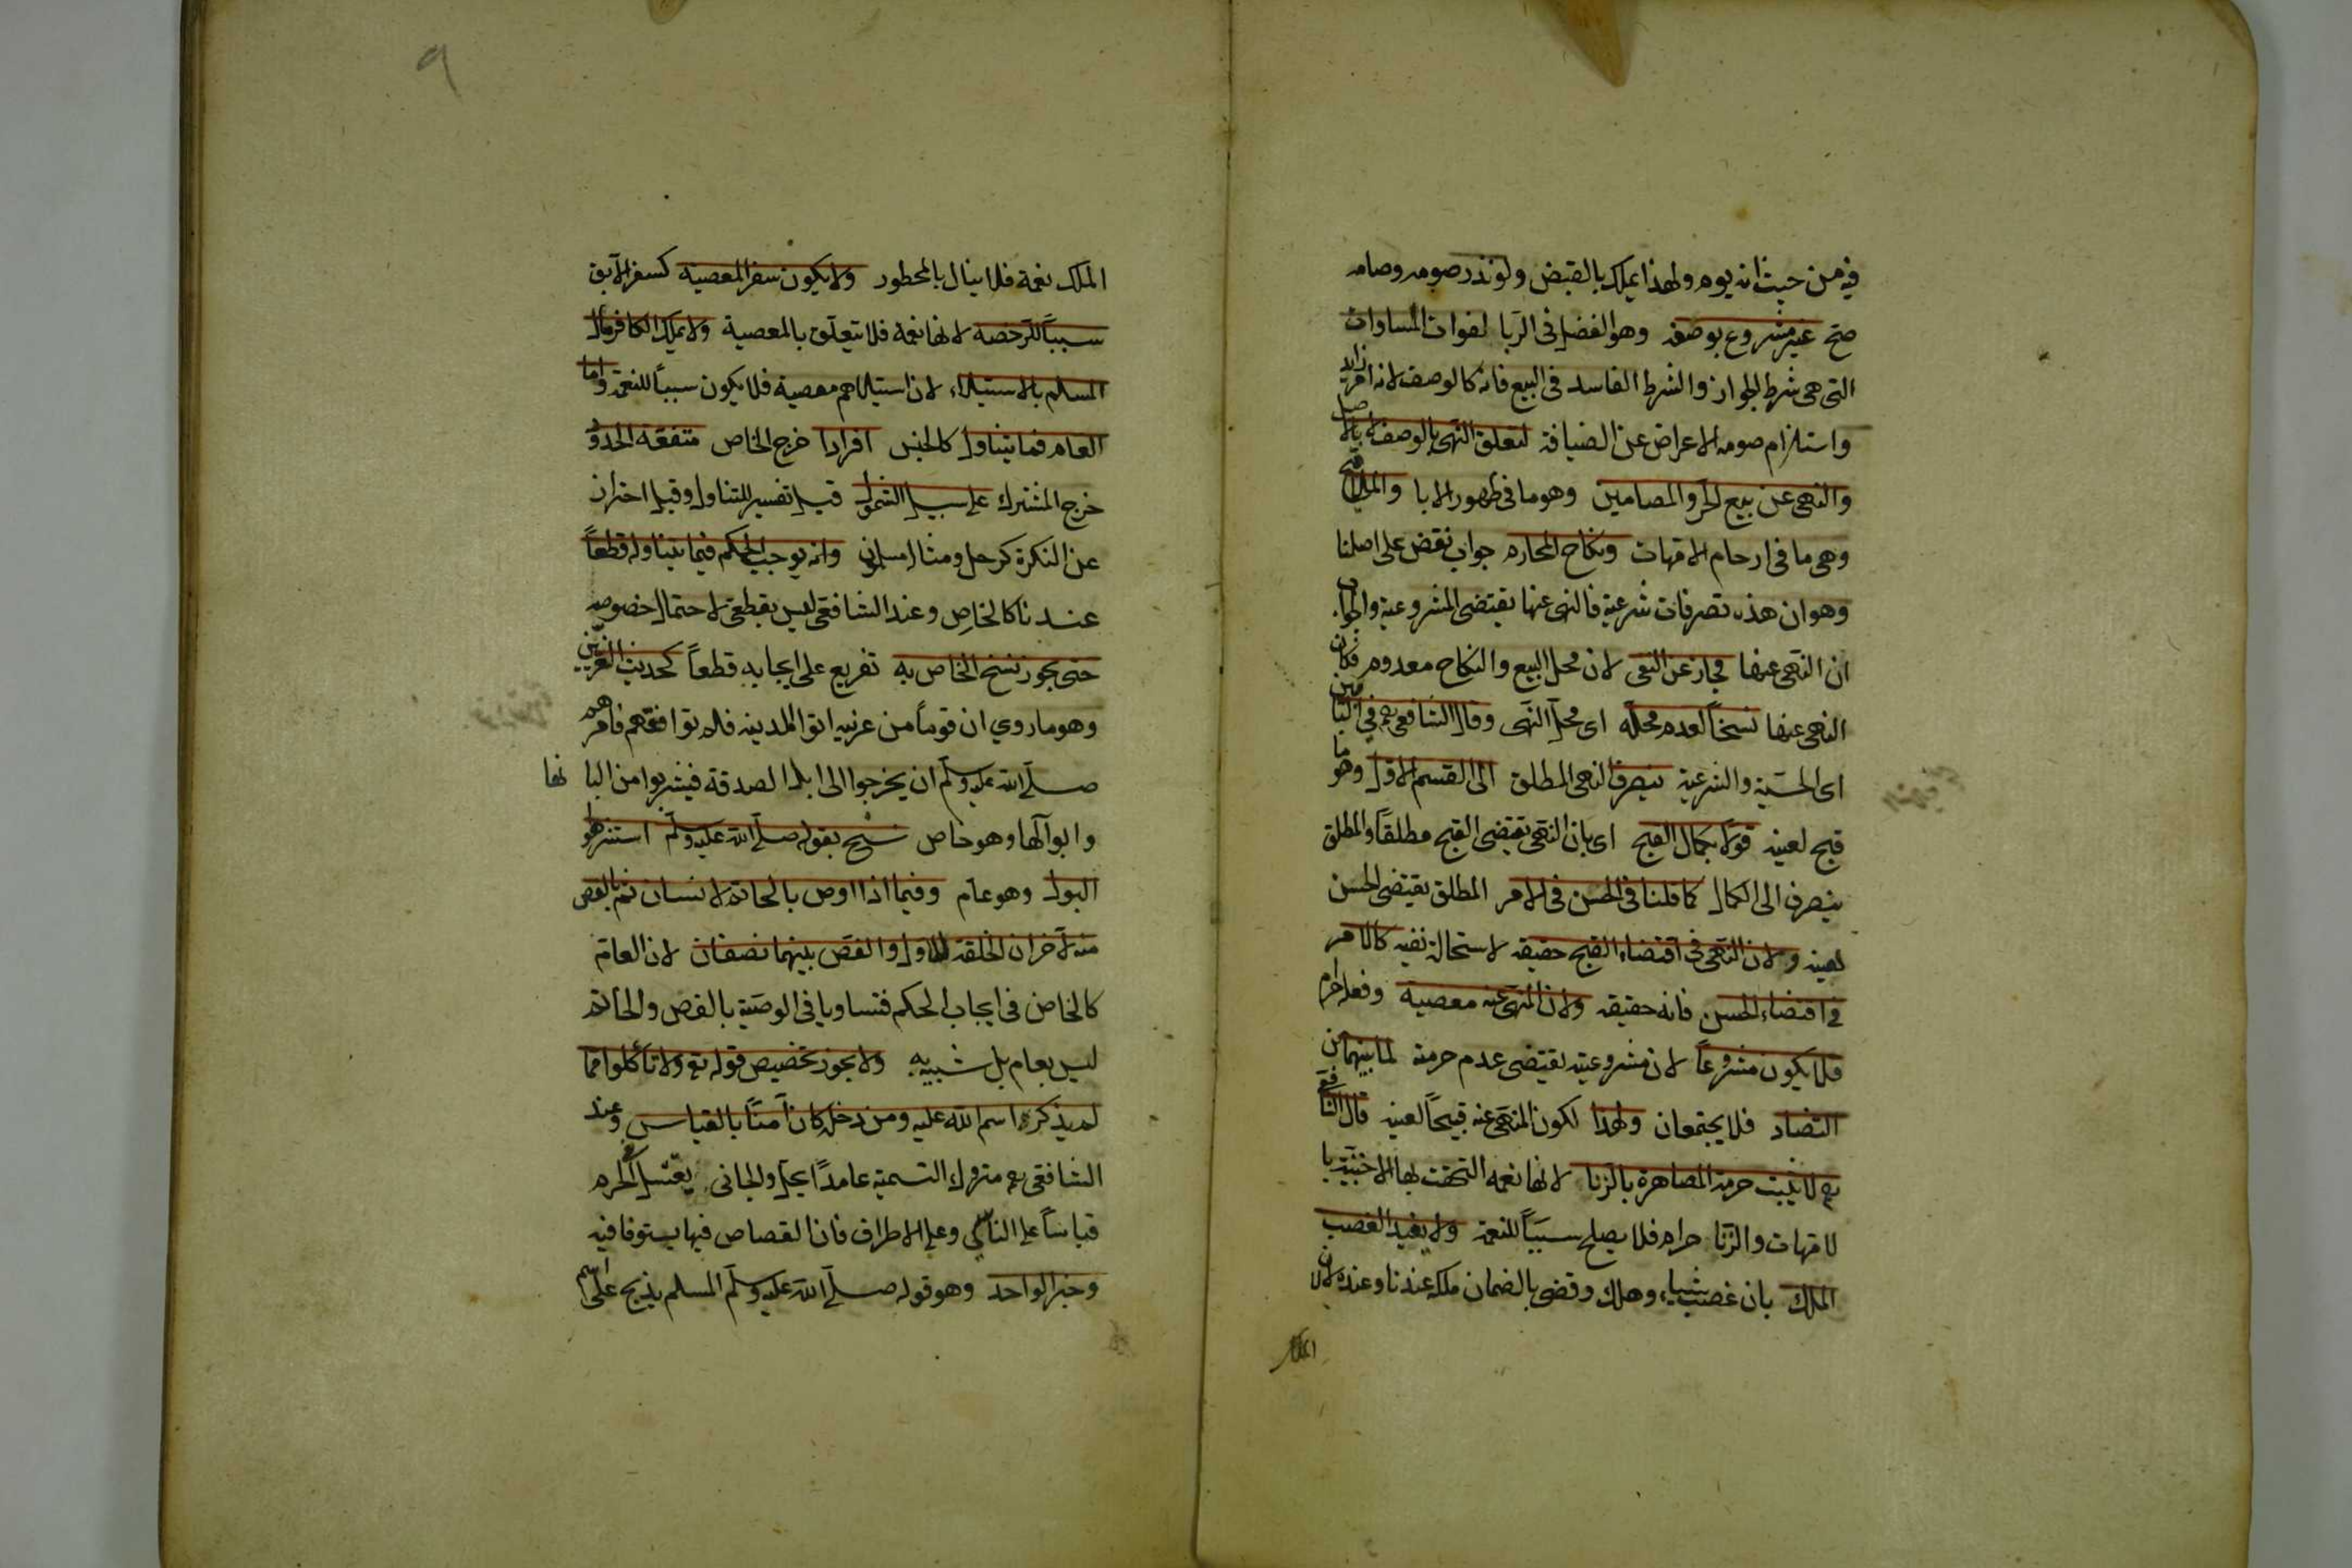 فيه من حيث انه يوم ولهذا يملك بالقبض ولو نذر صومه وصامه
صح غير مشروع بوصفه وهو الفضل فى الربا لفوات المساوات
التى هى شرط الجواز والشرط الفاسد فى البيع فانه كالوصف لانه امر زايد
واستلزام صومه الاعراض عن الضيافة لتعلق النهى بالوصف لا بالاصل
والنهى عن بيع الحر والمضامين وهو ما فى ظهور الابا والملاقيح
وهى ما فى ارحام الامهات ونكاح المحارم جواب نقض على اصلنا
وهو ان هذه تصرفات شرعية فالنهى عنها يقتضى المشروعية والجواب
ان النهى عنها مجاز عن النفى لان محل البيع والنكاح معدوم فكان
النهى عنها نسخاً لعدم محله اى محل النهى وقال الشافعى رح فى البابين
اى الحسية والشرعية ينصرف النهى المطلق الى القسم الاول وهو ما
قبح لعينه قولاً بكمال القبح اى بان النهى يقتضى القبح مطلقاً والمطلق
ينصرف الى الكمال كما قلنا فى الحسن فى الامر المطلق يقتضى الحسن
لعينه ولان النهى فى اقتضاء القبح حقيقه لاستحالة نفيه كالامر
فى اقتضاء الحسن فانه حقيقه ولان المنهى عنه معصية وفعل حرام
فلا يكون مشروعاً لان مشروعيته يقتضى عدم حرمته لما بينهما من
التضاد فلا يجتمعان ولهذا لكون المنهى عنه قبيحاً لعينه قال الشافعى
رح لا يثبت حرمة المصاهرة بالزنا لانها نعمه التحقت بها الاجنبية با
لامهات والزنا حرام فلا يصلح سبباً للنعمة ولا يفيد الغصب
الملك بان غصب شياء وهلك وقضى بالضمان ملكه عندنا وعنده لا لان
الملك
٩
الملك نعمة فلا ينال بالمحظور ولا يكون سفر المعصية كسفر الآبق
سبباً للرخصه لانها نعمة فلا يتعلق بالمعصية ولا يملك الكافر مال
المسلم بالاستيلاء لان استيلاهم معصية فلا يكون سبباً للنعمة واما
العام فما يتناول كالجنس افرادا خرج الخاص متفقة الحدود
خرج المشترك على سبيل الشمول قيل تفسير للتناول وقيل احتراز
عن النكرة كرجل ومثال مسلمون وانه يوجب الحكم فيما يتناوله قطعاً
عندنا كالخاص وعند الشافعى ليس بقطعى لاحتمال خصوصه
حتى يجوز نسخ الخاص به تفريع على ايجابه قطعاً كحديث العرنيين
وهو ما روي ان قوماً من عرنيه اتوا المدينه فلم توافقهم فامرهم
صلى الله عليه وسلم ان يخرجوا الى ابل الصدقة فيشربوا من البا نها
وابوآلها وهو خاص نسخ بقوله صلى الله عليه وسلم استنزهوا
البول وهو عام وفيما اذا اوص بالخاتم لانسان ثم بالفص
منه لآخر ان الحلقة للاول والفص بينهما نصفان لان العام
كالخاص فى ايجاب الحكم فتساويا فى الوصية بالفص والخاتم
ليس بعام بل شبيه به ولا يجوز تخصيص قوله تع ولا تأكلوا مما
لم يذكر اسم الله عليه ومن دخله كان آمناً بالقياس وعند
الشافعى رح متروك التسمية عامداً يحل والجانى يقتل فى الحرم
قياساً على الناسى وعلى الاطراف فان القصاص فيها يستوفا فيه
وخبر الواحد وهو قوله صلى الله عليه وسلم المسلم يذبح على اسم